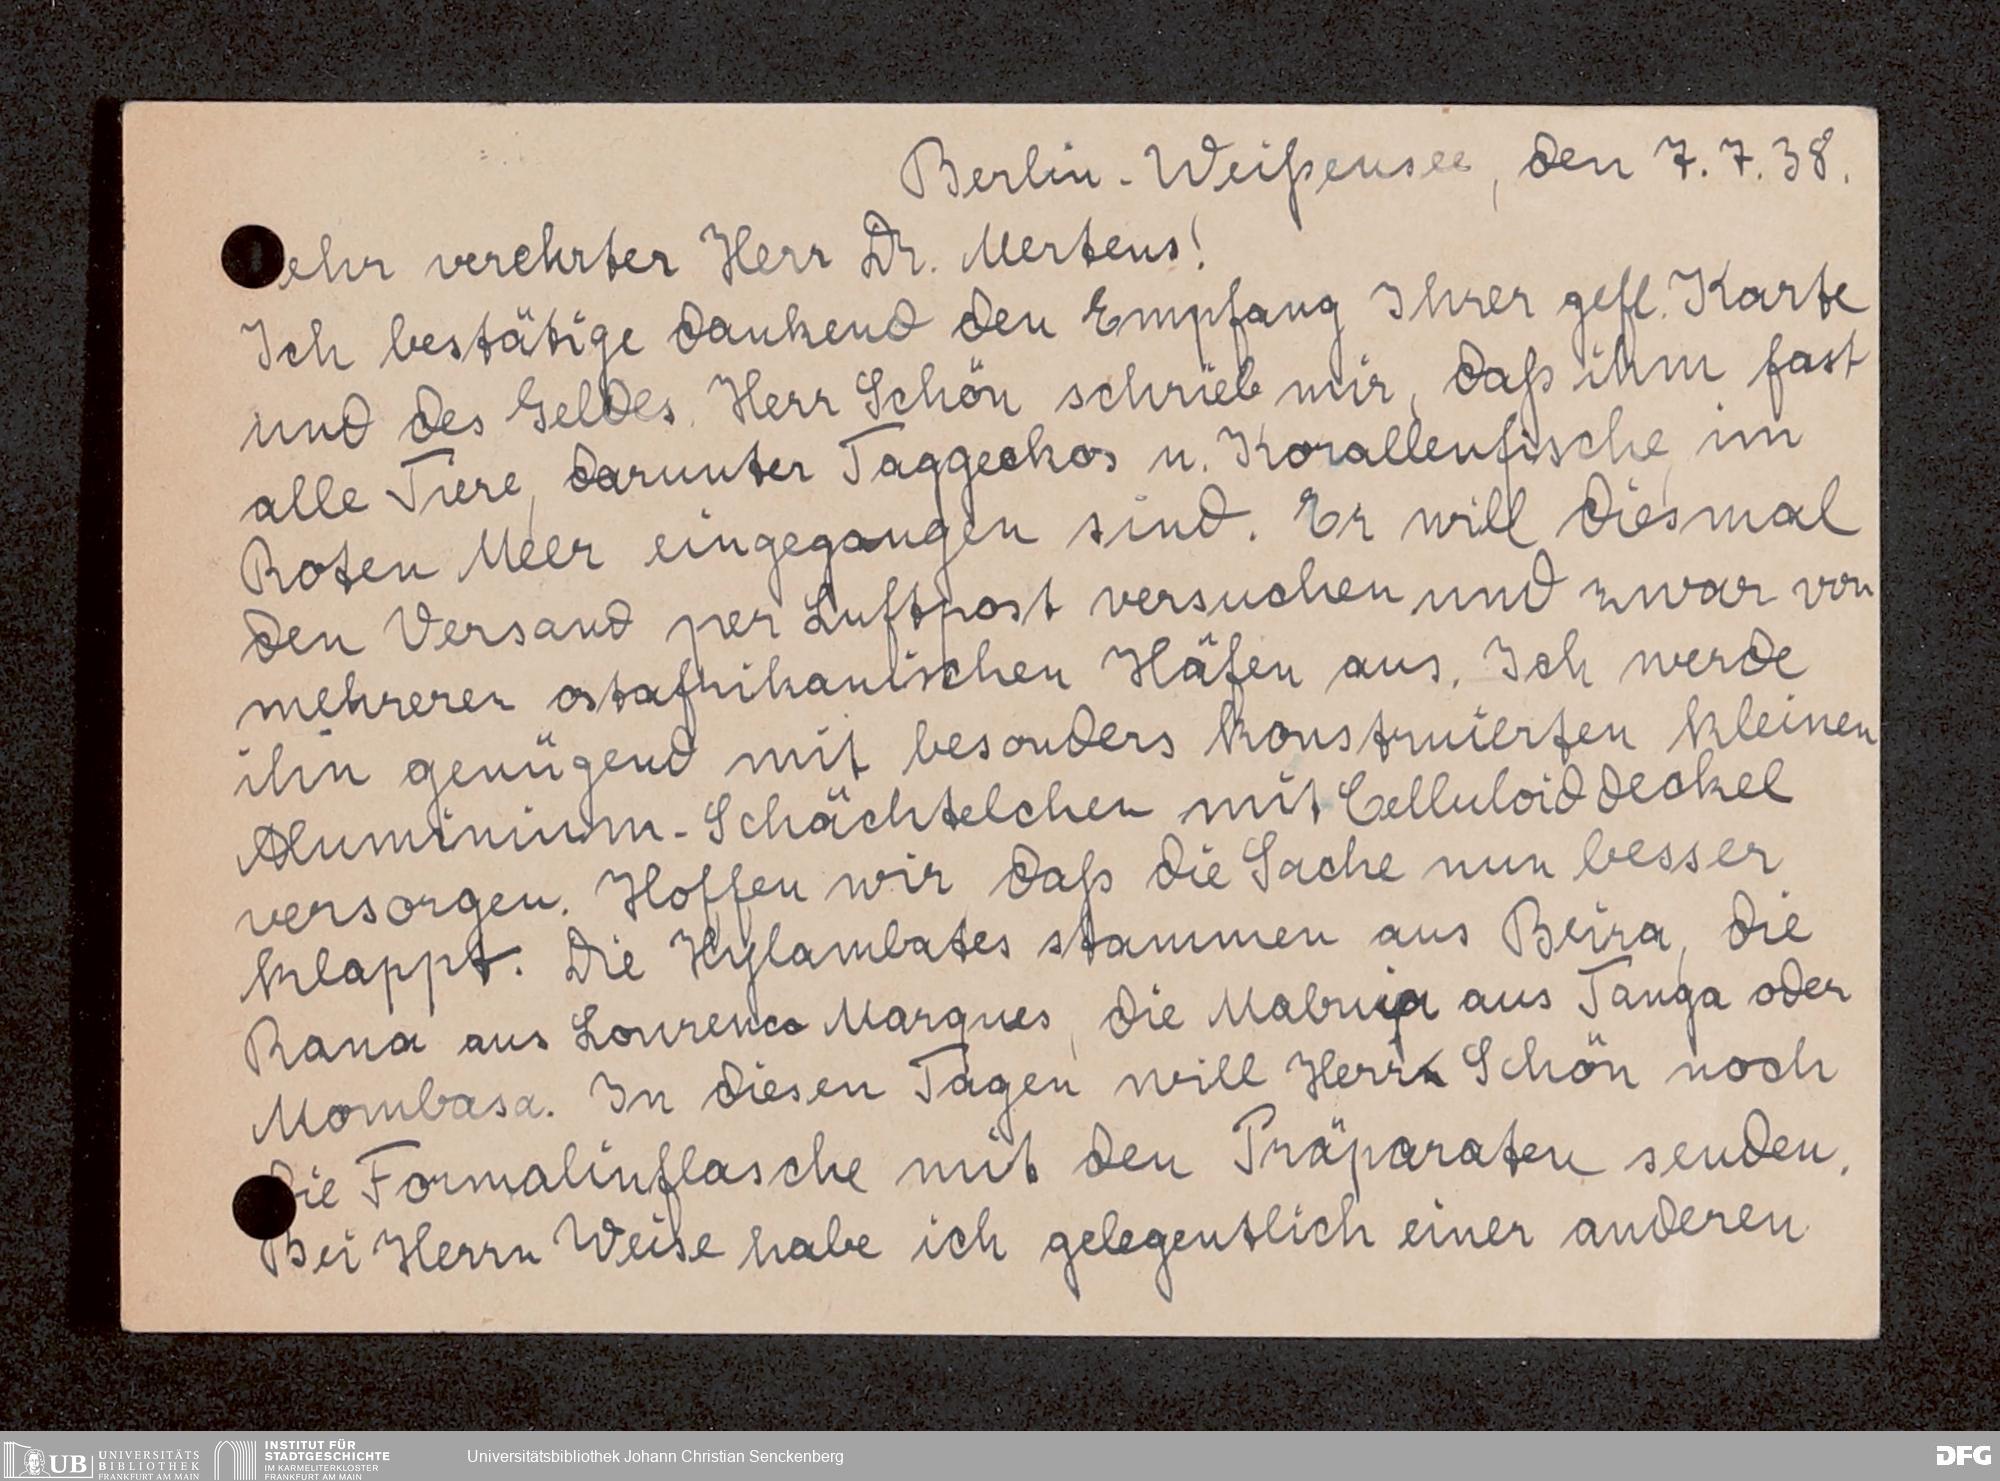 Berlin-Weißensee, den 7.7.38.
ehr verehrter Herr Dr. Mertens!
Ich bestätige dankend den Empfang Ihrer gefl. Karte
und des Geldes. Herr Schön schrieb mir, daß ihm fast
alle Tiere, darunter Taggeckos u. Korallenfische, im
Roten Meer eingegangen sind. Er will diesmal
den Versand per Luftpost versuchen und zwar von
mehreren ostafrikanischen Häfen aus. Ich werde
ihn genügend mit besonders konstruierten kleinen
Aluminium-Schächtelchen mit Celluloiddeckel
versorgen. Hoffen wir, daß die Sache nun besser
klappt. Die Hylambates stammen aus Beira, die
Rana aus Lourenco Marques, die Mabuya aus Tanga oder
Mombasa. In diesen Tagen will Herr Schön noch
die Formalinflasche mit den Präparaten senden.
Bei Herrn Weise habe ich gelegentlich einer anderen
UB UNIVERSITÄTS
BIBLIOTHEK
FRANKFURT AM MAIN
INSTITUT FÜR
STADTGESCHICHTE
IM KARMELITERKLOSTER
FRANKFURT AM MAIN
Universitätsbibliothek Johann Christian Senckenberg
DFG